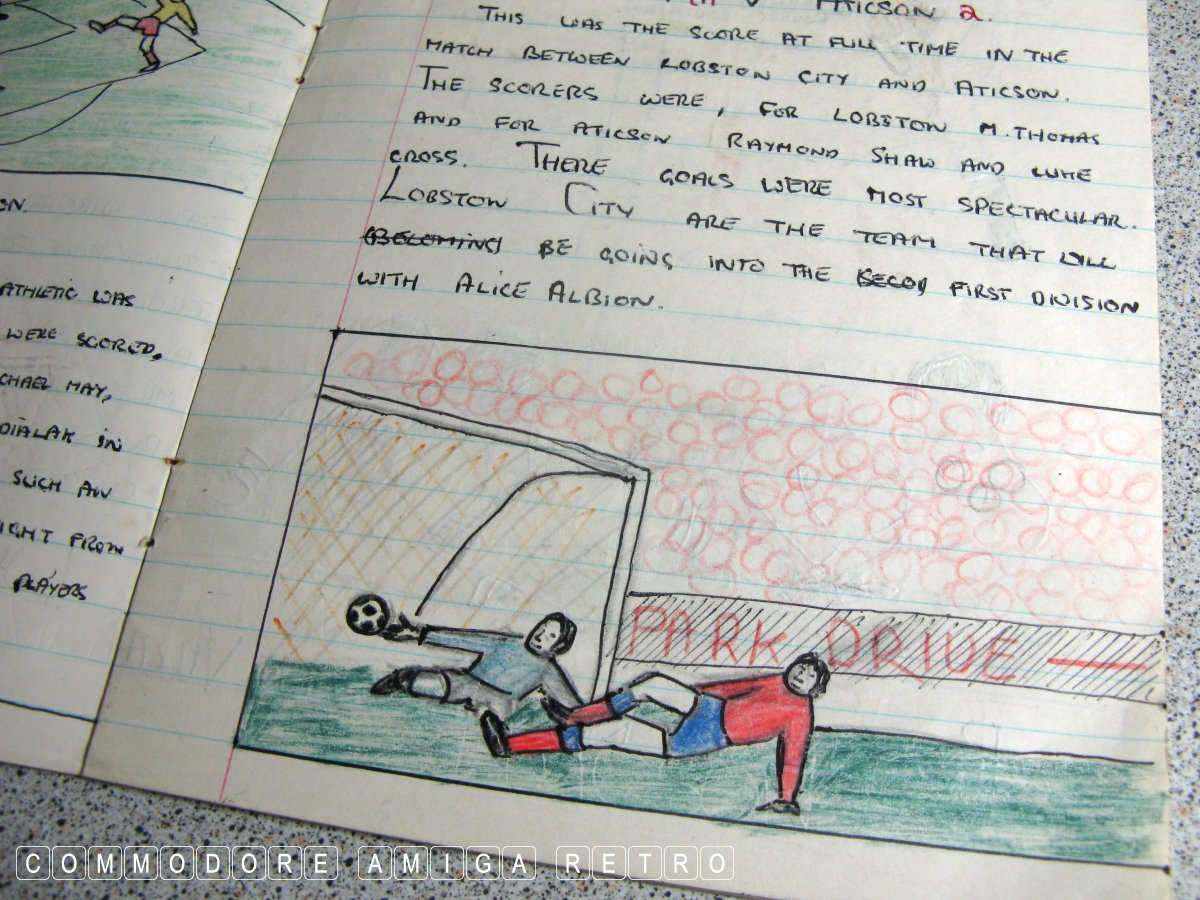 ON.
ATHLETIC WAS
WERE SCORED,
CHAEL MAY,
DIALAK IN
SUCH AN
IGHT FROM
PLAYERS
V ATICSON 2.
THIS WAS THE SCORE AT FULL TIME IN THE
MATCH BETWEEN LOBSTON CITY AND ATICSON.
THE SCORERS WERE, FOR LOBSTON M. THOMAS
AND FOR ATICSON RAYMOND SHAW AND LUKE
CROSS. THERE GOALS WERE MOST SPECTACULAR.
LOBSTON CITY ARE THE TEAM THAT WILL
(BECOMING) BE GOING INTO THE SECO FIRST DIVISION
WITH ALICE ALBION.
PARK DRIVE
COMMODORE AMIGA RETRO